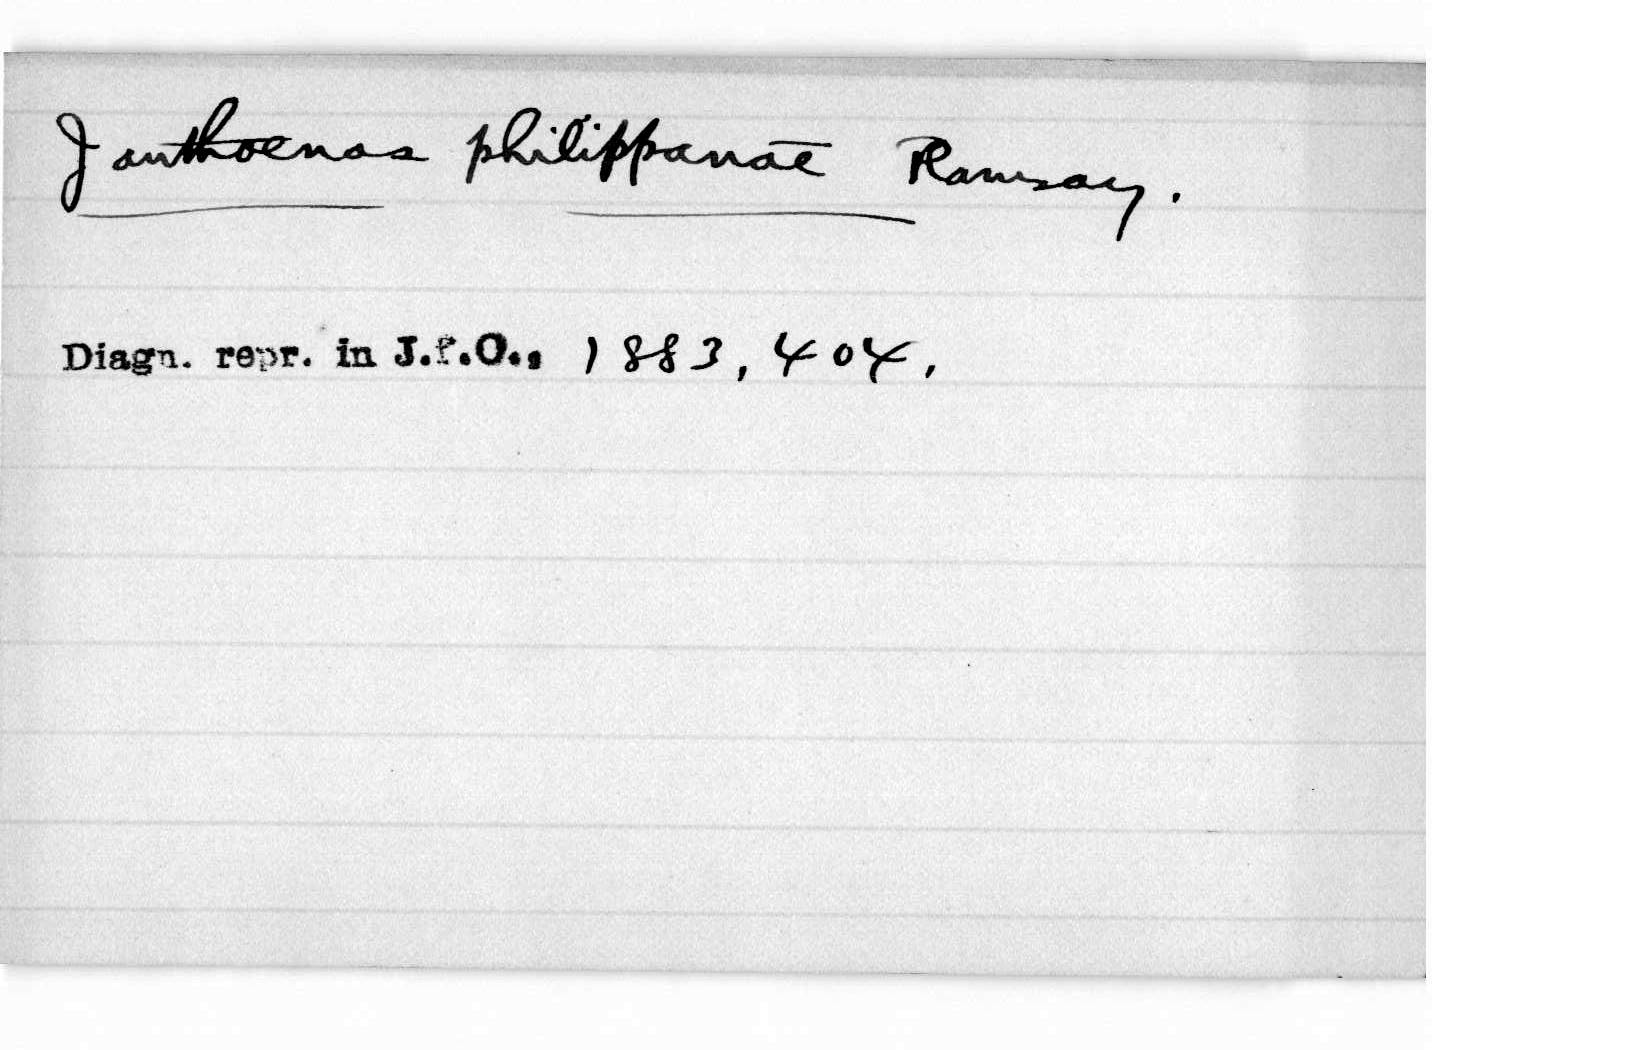 Janthoenas philippanae Ramsay.
Diagn. repr. in J.f.O., 1883, 404,